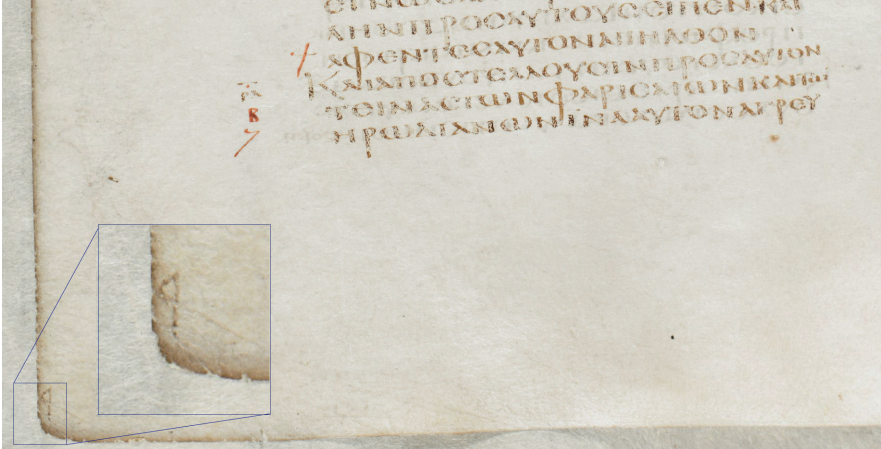 ΛΗΝΠΡΟϹΑΥΤΟΥϹΕΙΠΕΝΚΑΙ
ΑΦΕΝΤΕϹΑΥΤΟΝΑΠΗΛΘΟΝ
ΚΑΙΑΠΟϹΤΕΛΛΟΥϹΙΝΠΡΟϹΑΥΤΟΝ
ΤΕΙΝΑϹΤΩΝΦΑΡΙϹΑΙΩΝΚΑΙΤΩ
ΗΡΩΔΙΑΝΩΝΙΝΑΑΥΤΟΝΑΓΡΕΥ
Β